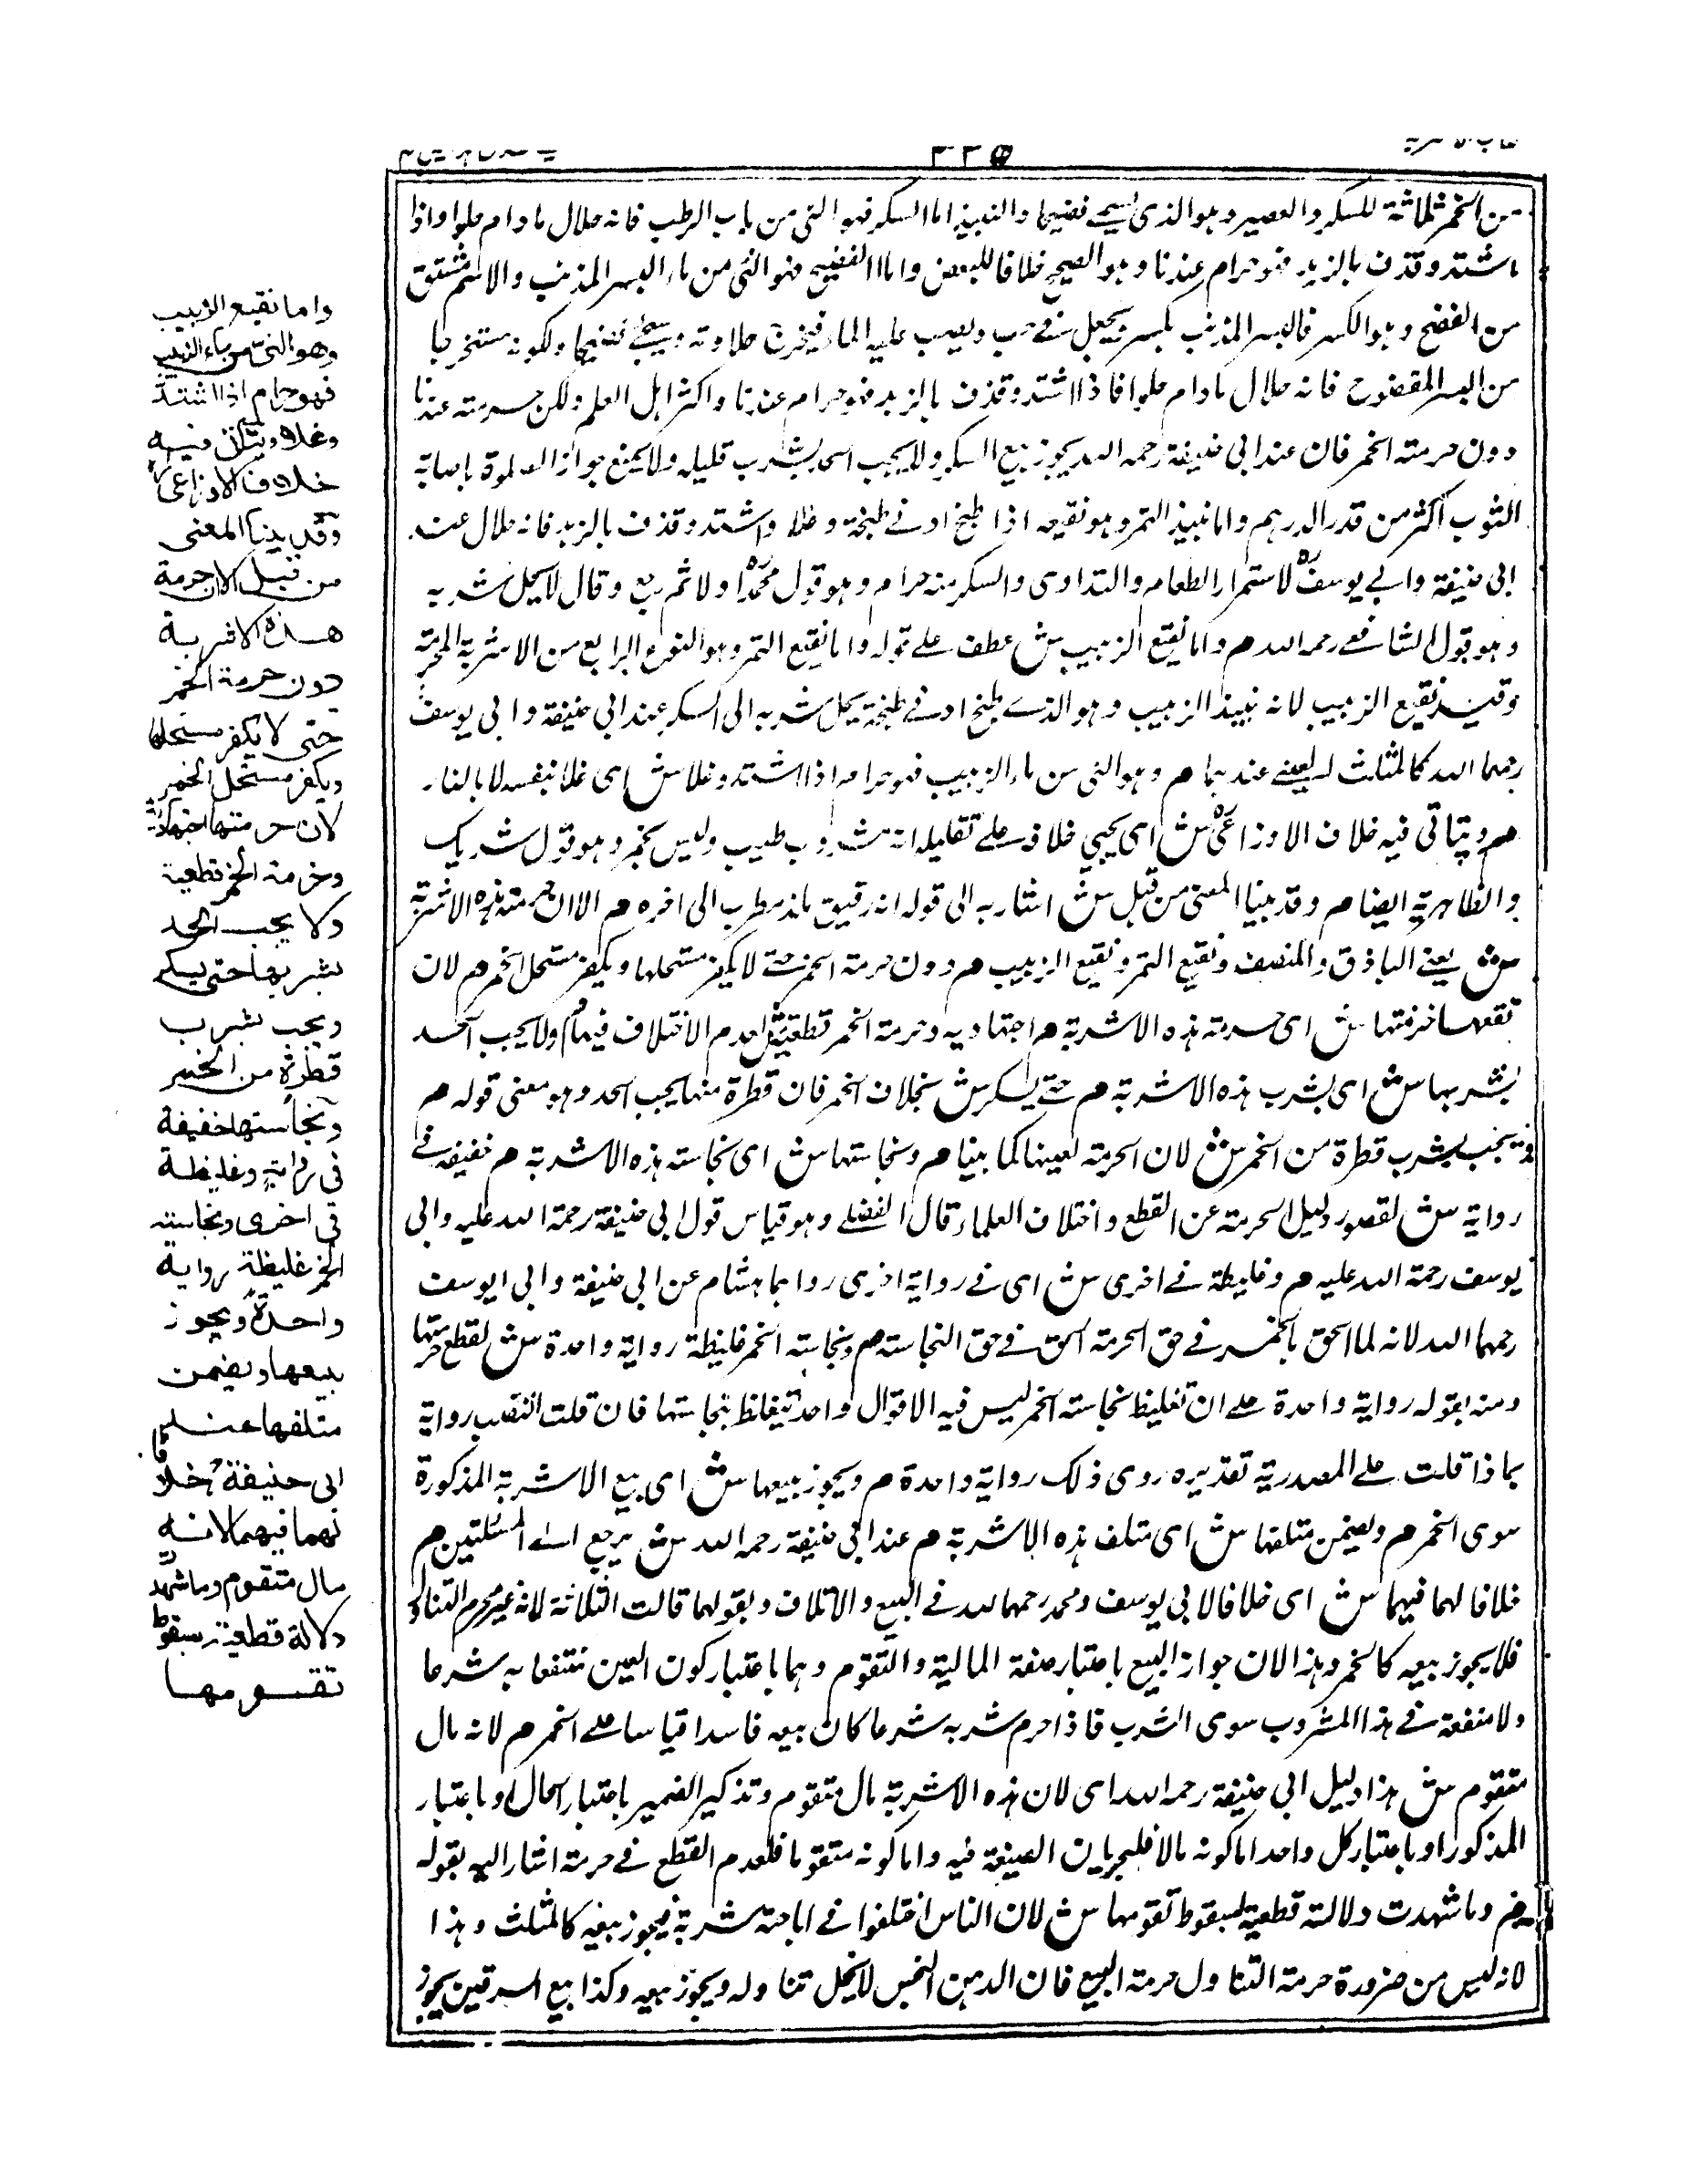 ٣٣٥
من الخمر ثلاثة للسكر والعصير وهو الذى يسمى فضيخا والنبيذ اما السكر فهو النى من باب الرطب فانه حلال ما دام حلوا واذا
اشتد وقذف بالزبد فهو حرام عندنا وهو الصحيح خلافا للبعض واما الفضيخ فهو النى من ماء البسر المذنب والاسم مشتق
من الفضخ وهو الكسر فالبسر المذنب يكسر يجعل فى حب ويصب عليه الماء فيخرج حلاوته ويسمى فضيخا ولكونه مستخرجا
من البسر المفضوح فانه حلال ما دام حلوا فاذا اشتد وقذف بالزبد فهو حرام عندنا واكثر اهل العلم ولكن حرمته عندنا
دون حرمته الخمر فان عند ابى حنيفة رحمه الله يجوز بيع السكر ولا يجب الحد بشرب قليله ولا يمنع جواز الصلوة باصابة
الثوب اكثر من قدر الدرهم واما نبيذ التمر وهو نقيعه اذا طبخ ادنے طبخة وغلا واشتد وقذف بالزبد فانه حلال عند
ابى حنيفة وابے يوسف لاستمراء الطعام والتداوى والسكر منه حرام وهو قول محمد اولا ثم رجع وقال لا يحل شربه
وهو قول الشافعے رحمه الله م واما نقيع الزبيب ش عطف علے قوله واما نقيع التمر وهو النوع الرابع من الاشربة المحرمة
وقيد نقيع الزبيب لانه نبيذ الزبيب وهو الذے طبخ ادنے طبخة يحل شربه الى السكر عند ابى حنيفة وابى يوسف
رحمهما الله كالمثلث يعنے عندهما م وهو النى من ماء الزبيب فهو حرام اذا اشتد وغلا ش اى غلا بنفسه لا بالنار
م ويتاتى فيه خلاف الاوزاعى ش اى يجيى خلافه علے تعليله انه مشروب طيب وليس بخمر وهو قول شريك
والظاهرية ايضا م وقد بينا المعنى من قبل ش اشار به الى قوله انه رقيق ملذ مطرب الى اخره م الا ان حرمته هذه الاشربة
ش يعنے الباذق والمنصف ونقيع التمر ونقيع الزبيب م دون حرمة الخمر حتے لا يكفر مستحلها ويكفر مستحل الخمر م لان
حرمتها ش اى حرمته هذه الاشربة م اجتهاديه وحرمة الخمر قطعية ش لعدم الاختلاف فيها م ولا يجب الحد
بشربها ش اى بشرب هذه الاشربة م حتے يسكر ش بخلاف الخمر فان قطرة منها يجب الحد وهو معنى قوله م
ويجب بشرب قطرة من الخمر ش لان الحرمة لعينها كما بينا م ونجاستها ش اى نجاسته هذه الاشربة م خفيفه فے
رواية ش لقصور دليل الحرمته عن القطع واختلاف العلماء قال الفضلے وهو قياس قول ابى حنيفة رحمة الله عليه وابى
يوسف رحمة الله عليه م وغليظة فے اخرى ش اى فے رواية اخرى رواها هشام عن ابى حنيفة وابى ايوسف
رحمهما الله لانه لما الحق بالخمر فے حق الحرمته الحق فے حق النجاسته م ونجاسته الخمر غليظة رواية واحدة ش لقطع حرمتها
ومنه بقوله رواية واحدة علے ان تغليظ نجاسته الخمر ليس فيه الا قوال واحد بتغليظ نجاستها فان قلت انتصب رواية
بماذا قلت علے المصدرية تقديره روى ذلك رواية واحدة م ويجوز بيعها ش اى بيع الاشربة المذكورة
سوى الخمر م ويضمن متلفها ش اى متلف هذه الاشربة م عند ابى حنيفة رحمه الله ش يرجع الے المسئلتين م
خلافا لهما فيهما ش اى خلافا لابى يوسف ومحمد رحمهما الله فے البيع والاتلاف وبقولهما قالت الثلاثة لانه غير محرم التناول
فلا يجوز بيعه كالخمر وهذا لان جواز البيع باعتبار صفة المالية والتقوم وهما باعتبار كون العين منتفعا به شرعا
ولا منفعة فے هذا المشروب سوى الشرب فاذا حرم شربه شرعا كان بيعه فاسدا قياسا علے الخمر م لانه مال
متقوم ش هذا دليل ابى حنيفة رحمه الله اى لان هذه الاشربة مال متقوم وتذكير الضمير باعتبار الحال او باعتبار
المذكور او باعتبار كل واحد اما كونه مالا فلجريان الصيغة فيه واما كونه متقوما فلعدم القطع فے حرمته اشار اليه بقوله
م وما شهدت دلالته قطعية لسقوط تقومها ش لان الناس اختلفوا فے اباحته شربه فيجوز بيعه كالمثلث وهذا
لانه ليس من ضرورة حرمته التناول حرمته البيع فان الدهن النجس لا يحل تناوله ويجوز بيعه وكذا بيع السرقين يجوز
واما نقيع الزبيب
وهو النى من ماء الزبيب
فهو حرام اذا اشتد
وغلا ويتاتى فيه
خلاف الاوزاعى
وقد بينا المعنى
من قبل الا ان حرمة
هذه الاشربة
دون حرمة الخمر
حتى لا يكفر مستحلها
ويكفر مستحل الخمر
لان حرمتها اجتهادية
وحرمة الخمر قطعية
ولا يجب الحد
بشربها حتى يسكر
ويجب بشرب
قطرة من الخمر
ونجاستها خفيفة
فى رواية وغليظة
فى اخرى ونجاسته
الخمر غليظة رواية
واحدة ويجوز
بيعها ويضمن
متلفها عند
ابى حنيفة خلافا
لهما فيهما لانه
مال متقوم وما شهد
دلالة قطعية بسقوط
تقومها